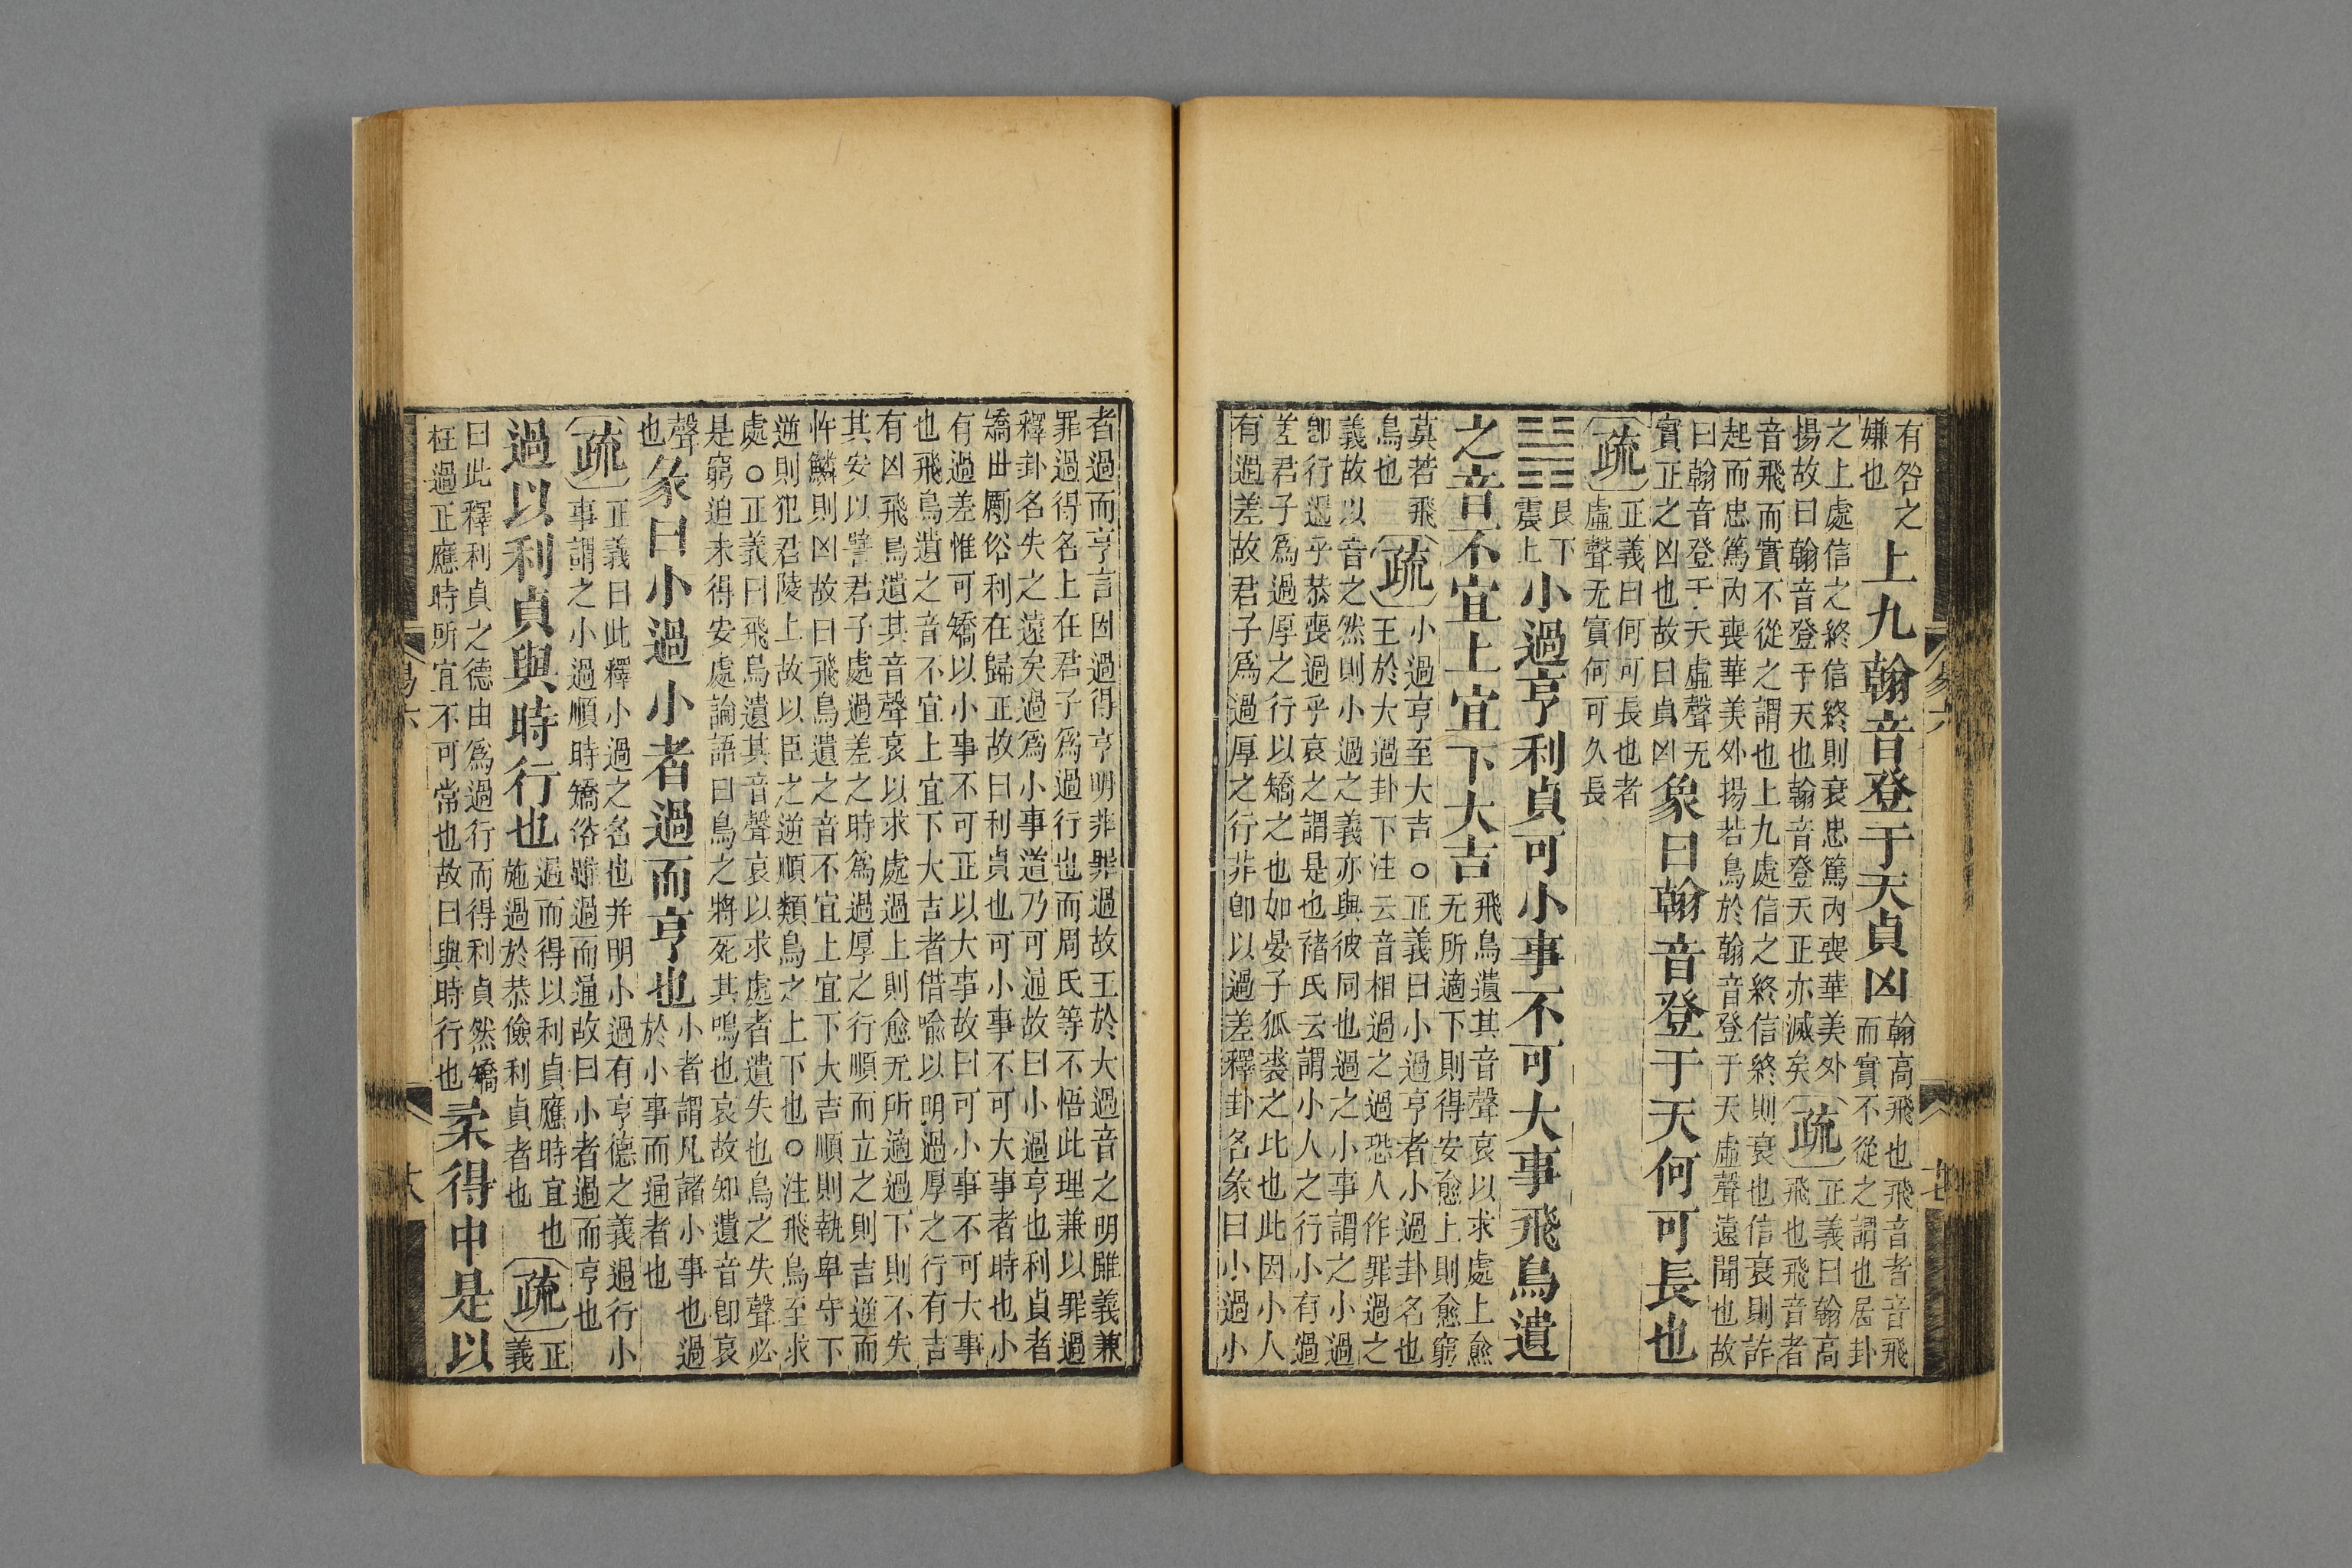 有咎之
嫌也
上九翰音登于天貞凶
翰高飛也飛音者音飛
而實不從之謂也居卦
之上處信之終信終則衰忠篤內喪華美外
揚故曰翰音登于天也翰音登天正亦滅矣
疏
正義曰翰高
飛也飛音者
音飛而實不從之謂也上九處信之終信終則衰也信衰則詐
起而忠篤內喪華美外揚若鳥於翰音登于天虛聲遠聞也故
曰翰音登于天虛聲无
實正之凶也故曰貞凶
象曰翰音登于天何可長也
疏
正義曰何可長也者
虛聲无實何可久長
䷽
艮下
震上
小過亨利貞可小事不可大事飛鳥遺
之音不宜上宜下大吉
飛鳥遺其音聲哀以求處上愈
无所適下則得安愈上則愈窮
莫若飛
鳥也
疏
小過亨至大吉○正義曰小過亨者小過卦名也
王於大過卦下注云音相過之過恐人作罪過之
義故以音之然則小過之義亦與彼同也過之小事謂之小過
卽行過乎恭喪過乎哀之謂是也褚氏云謂小人之行小有過
差君子爲過厚之行以矯之也如晏子狐裘之比也此因小人
有過差故君子爲過厚之行非卽以過差釋卦名彖曰小過小
者過而亨言因過得亨明非罪過故王於大過音之明雖義兼
罪過得名上在君子爲過行也而周氏等不悟此理兼以罪過
釋卦名失之遠矣過爲小事道乃可通故曰小過亨也利貞者
矯世勵俗利在歸正故曰利貞也可小事不可大事者時也小
有過差惟可矯以小事不可正以大事故曰可小事不可大事
也飛鳥遺之音不宜上宜下大吉者借喻以明過厚之行有吉
有凶飛鳥遺其音聲哀以求處過上則愈无所適過下則不失
其安以譬君子處過差之時爲過厚之行順而立之則吉逆而
忤鱗則凶故曰飛鳥遺之音不宜上宜下大吉順則執卑守下
逆則犯君陵上故以臣之逆順類鳥之上下也○注飛鳥至求
處○正義曰飛鳥遺其音聲哀以求處者遺失也鳥之失聲必
是窮迫未得安處論語曰鳥之將死其鳴也哀故知遺音卽哀
聲
也
彖曰小過小者過而亨也
小者謂凡諸小事也過
於小事而通者也
疏
正義曰此釋小過之名也并明小過有亨德之義過行小
事謂之小過順時矯俗雖過而通故曰小者過而亨也
過以利貞與時行也
過而得以利貞應時宜也
施過於恭儉利貞者也
疏
正
義
曰此釋利貞之德由爲過行而得利貞然矯
枉過正應時所宜不可常也故曰與時行也
柔得中是以